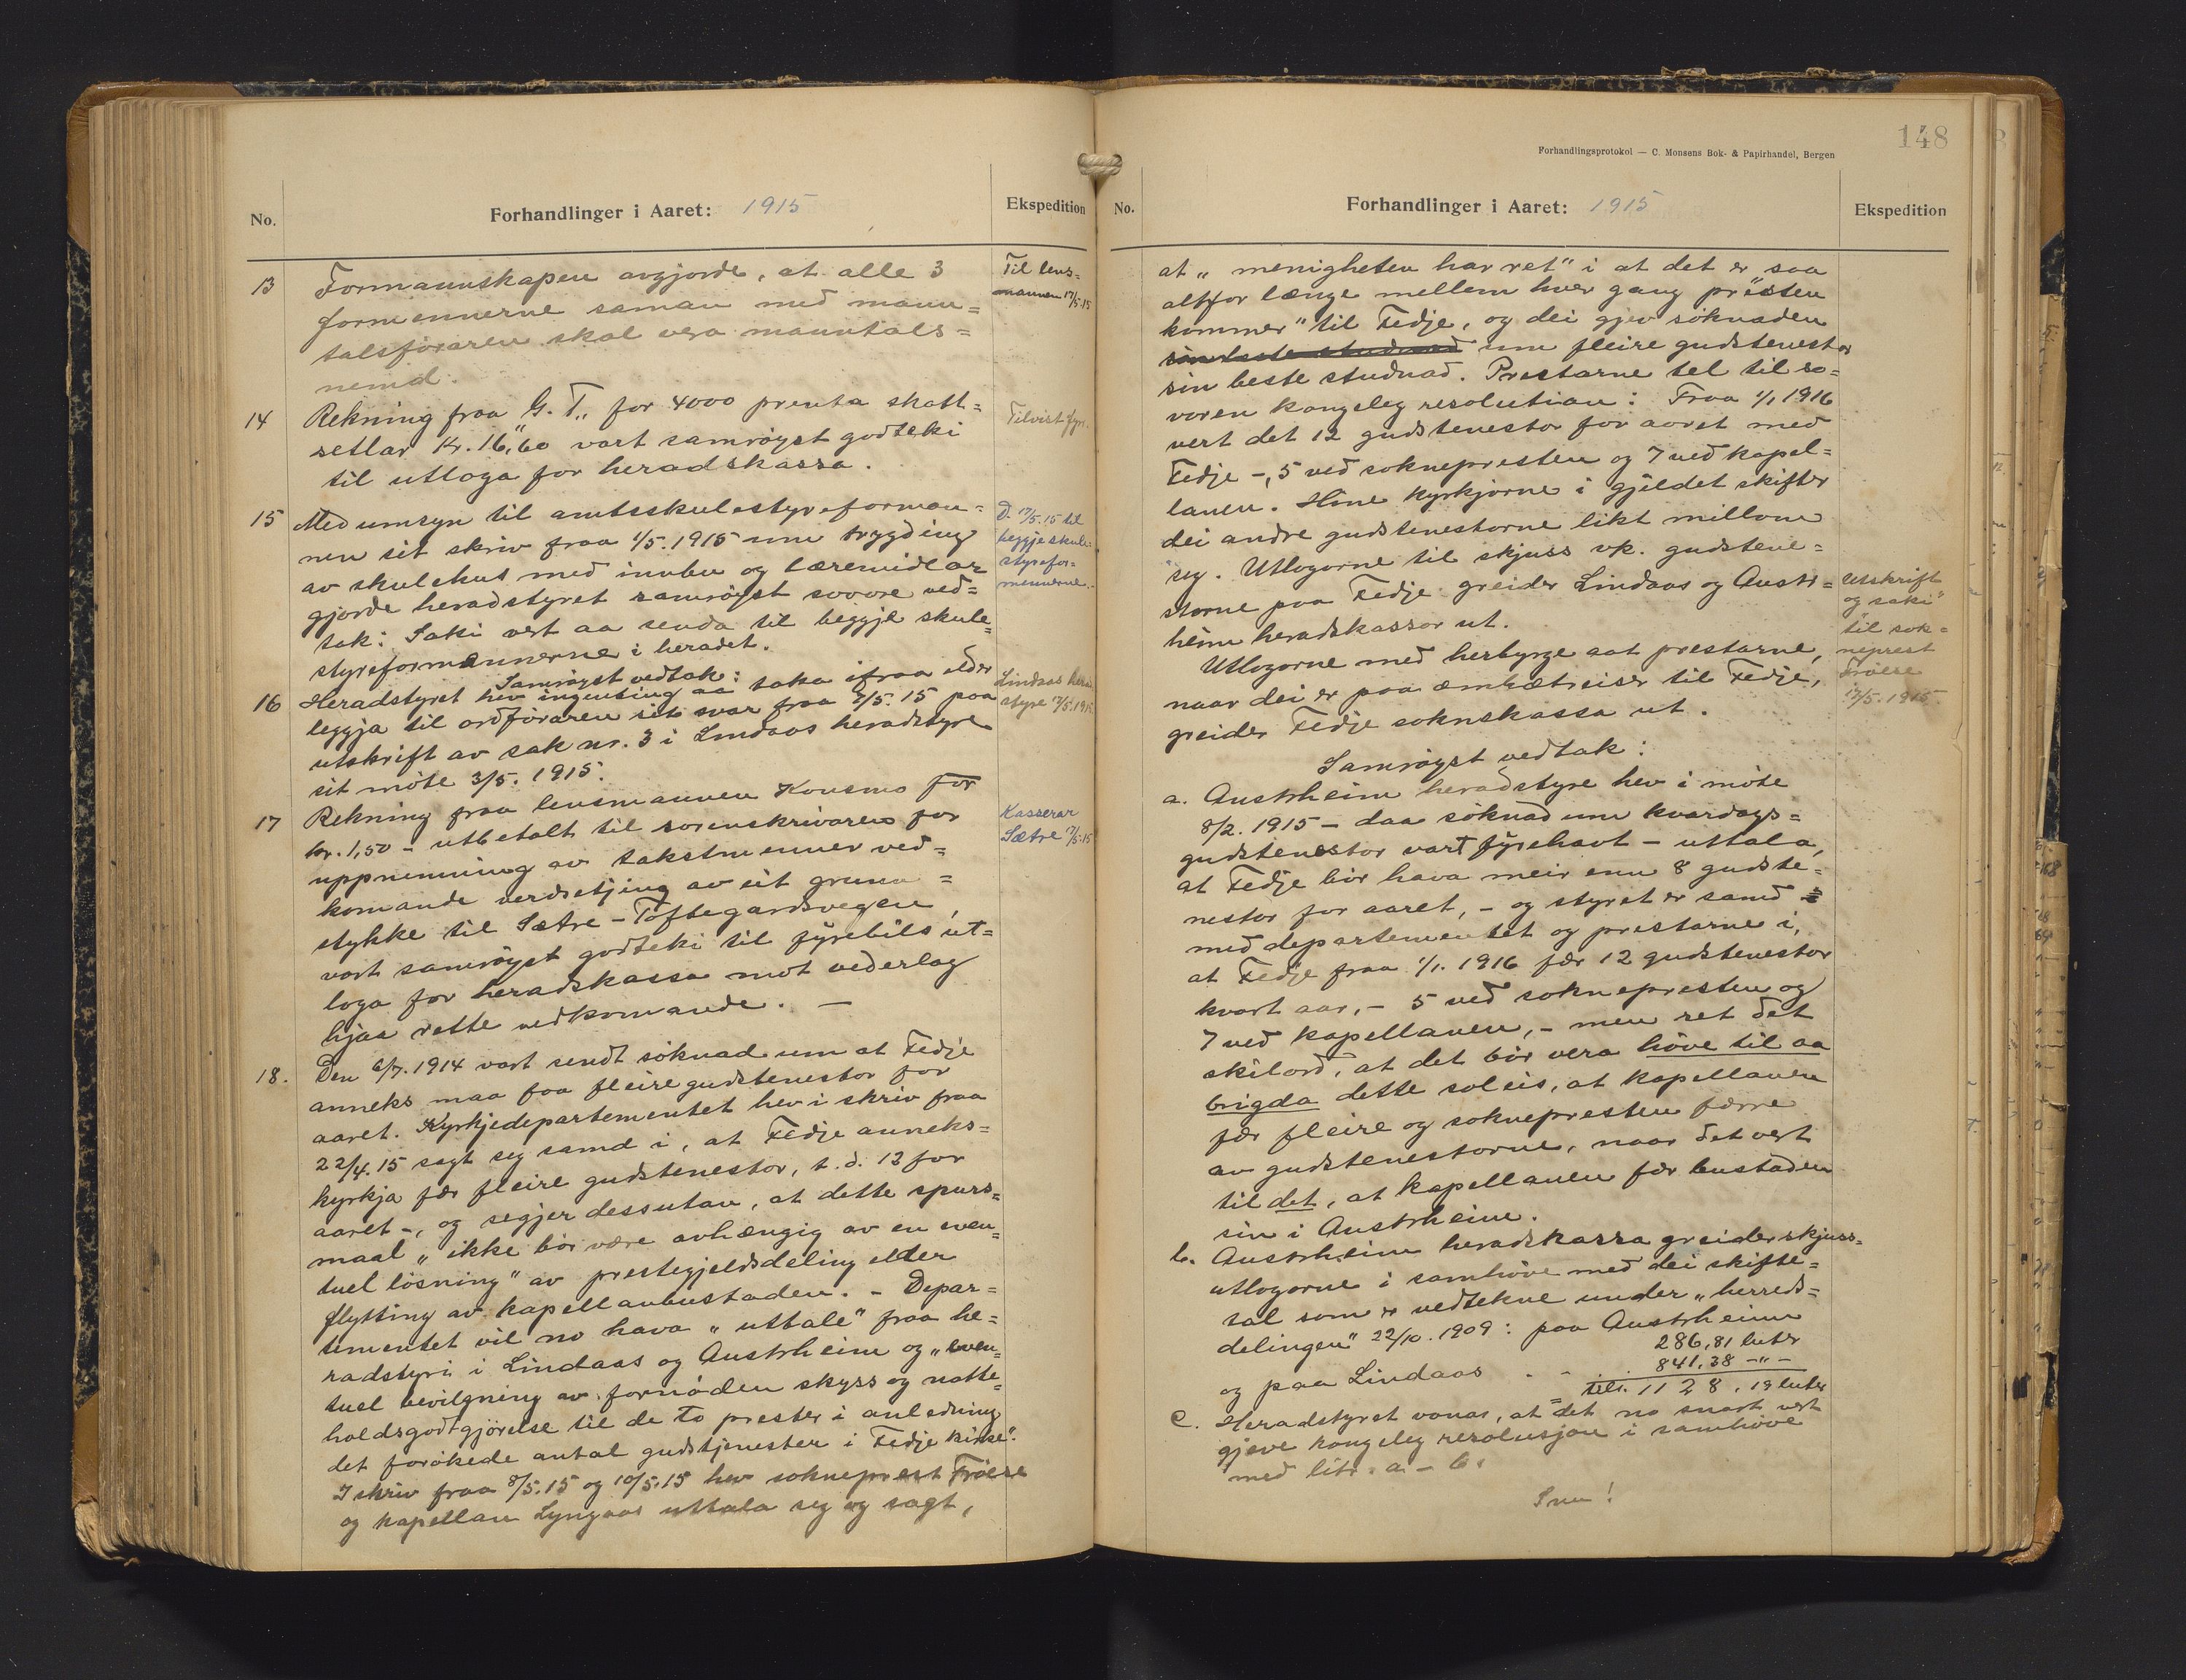 No.
Forhandlinger i Aaret: 1915
Ekspedition
13 Formannskapen avgjorde, at alle 3
formennerne saman med mann=
talsföraren skal vera manntals=
nemd.
Til lens=
mannen 17/5.15
14 Rekning fraa "G. T.," for 4000 prenta skatt=
setlar kr. 16,60 vart samröyst godteki
til utloga for heradskassa.
Tilvist fyrr.
15 Med umsyn til amtsskulestyreforman=
nen sit skriv fraa 1/5.1915 um trygding
av skulehus med innbu og læremidlar
gjorde heradstyret samröyst sovore ved=
tak: Saki vert aa senda til beggje skule=
styreformennerne i heradet.
D. 17/5.15 til
beggje skule=
styrefor=
mennerne.
Samröyst vedtak:
16 Heradstyret hev ingenting aa taka ifraa elder
leggja til ordföraren sit svar fraa 7/5.15 paa
utskrift av sak nr. 3 i Lindaas heradstyre
sit möte 3/5.1915.
Lindaas herad
styre 17/5.1915.
17 Rekning fraa lensmannen Konsmo for
kr. 1,50 - utbetalt til sorenskrivaren for
uppnemning av takstmenner ved=
komande verdsetjing av eit grunn=
stykke til Sætre-Toftegardsvegen,
vart samröyst godteki til fyrebils ut=
loga for heradskassa mot vederlag
hjaa rette vedkomande. -
Kasserar
Sætre 17/5.15
18. Den 6/7.1914 vart sendt söknad um at Fedje
anneks maa faa fleire gudstenestor for
aaret. Kyrkjedepartementet hev i skriv fraa
22/4.15 sagt seg samd i, at Fedje anneks=
kyrkja fær fleire gudstenestor, t. d. 12 for
aaret -, og segjer dessutan, at dette spurs=
maal "ikke bör være avhængig av en even=
tuel lösning" av prestegjeldsdeling elder
flytting av kapellanbustaden. - Depar=
tementet vil no hava "uttale" fraa he=
radstyri i Lindaas og Austrheim og "even=
tuel bevilgning av fornöden skyss og natte=
holdsgodtgjörelse til de to prester i anledning
det forökede antal gudstjenester i Fedje kirke".
I skriv fraa 8/5.15 og 10/5.15 hev sokneprest Fröese
og kapellan Lyngaas uttala seg og sagt,
148
Forhandlingsprotokol — C. Monsens Bok- & Papirhandel, Bergen
No.
Forhandlinger i Aaret: 1915
Ekspedition
at "menigheten har ret" i at det er "saa
altfor længe mellem hver gang presten
kommer" til Fedje, og dei gjev söknaden
sin beste studnad um fleire gudstenestor
sin beste studnad. Prestarne tel til so=
voren kongeleg resolution: Fraa 1/1 1916
vert det 12 gudstenestor for aaret med
Fedje -, 5 ved soknepresten og 7 ved kapel=
lanen. Hine kyrkjorne i gjeldet skifter
dei andre gudstenestorne likt millom
seg. Utlogorne til skjuss vk. gudstene=
storne paa Fedje greider Lindaas og Austr=
heim heradskassor ut.
Utlogorne med herbyrge aat prestarne,
naar dei er paa embætreiser til Fedje,
greider Fedje soknskassa ut.
Utskrift
og "saki"
til sok=
neprest
Fröese
17/5.1915.
Samröyst vedtak:
a. Austrheim heradstyre hev i möte
8/2.1915 - daa söknad um kvardags=
gudstenestor vart fyrehavt - uttala,
at Fedje bör hava meir enn 8 gudste=
nestor for aaret, - og styret er samd
med departementet og prestarne i,
at Fedje fraa 1/1.1916 fær 12 gudstenestor
kvart aar, - 5 ved soknepresten og
7 ved kapellanen, - men set det
skilord, at det bör vera höve til aa
brigda dette soleis, at kapellanen
fær fleire og soknepresten færre
av gudstenestorne, naar det vert
til det, at kapellanen fær bustaden
sin i Austrheim.
b. Austrheim heradskassa greider skjuss=
utlogorne i samhöve med dei skifte=
tal som er vedtekne under "herreds=
delingen" 22/10.1909: paa Austrheim
286,81 luter
og paa Lindaas . - . 841,38 -"-
tils. 1128,19 luter
c. Heradstyret vonar, at det no snart vert
gjeve kongeleg resolusjon i samhöve
med litr. a - b.
Snu!